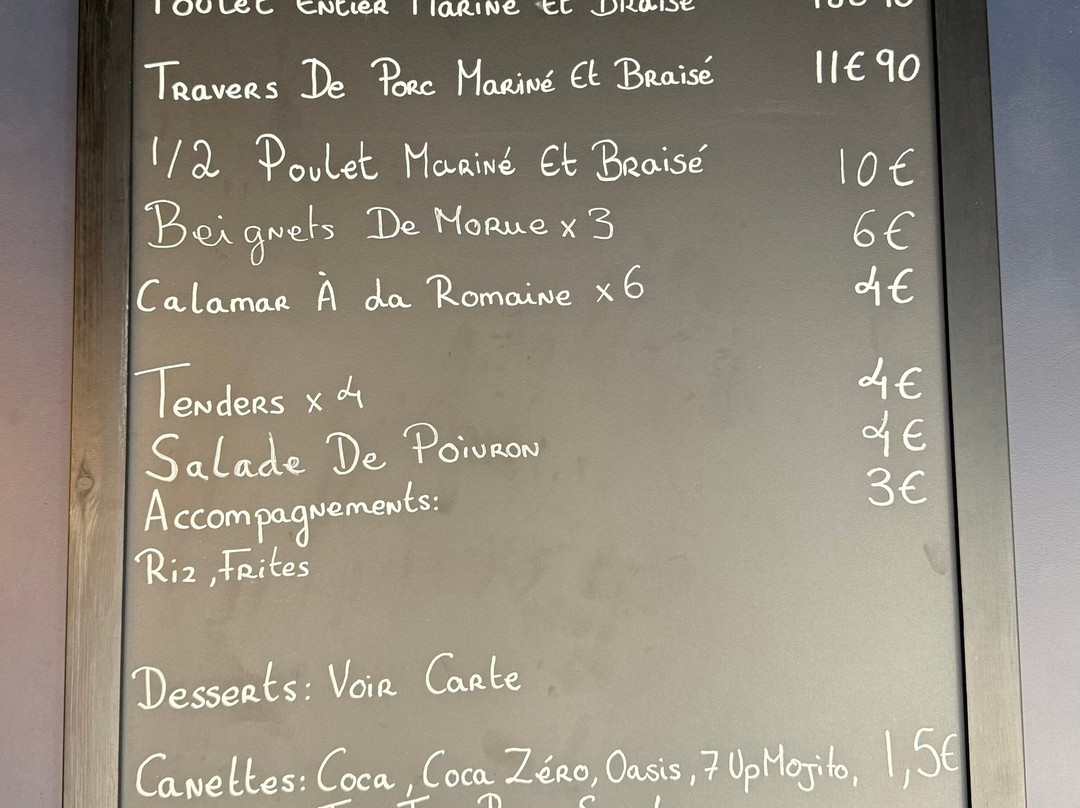 Poulet Entier Mariné Et Braisé
Travers De Porc Mariné Et Braisé 11€90
1/2 Poulet Mariné Et Braisé 10€
Beignets De Morue x3 6€
Calamar À da Romaine x6 4€
Tenders x4 4€
Salade De Poivron 4€
Accompagnements: 3€
Riz, Frites
Desserts: Voir Carte
Canettes: Coca, Coca Zéro, Oasis, 7UpMojito, 1,5€